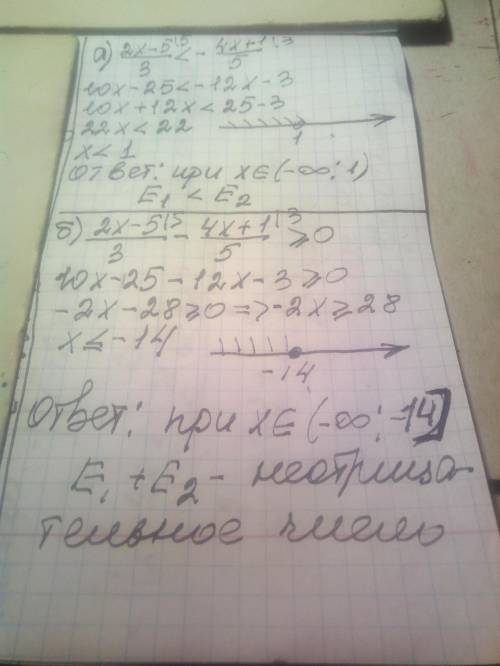 а) (2x-5\5)/3 < - (4x+1\3)/5
10x-25<-12x-3
10x+12x<25-3
22x<22
1
x<1
ответ: при x∈(-∞;1)
E₁ < E₂
б) (2x-5\5)/3 - (4x+1\3)/5 ≥0
10x-25-12x-3≥0
-2x-28≥0=>-2x≥28
x≤-14
-14
ответ: при x∈(-∞;-14]
E₁+E₂- неотрица-
тельное число